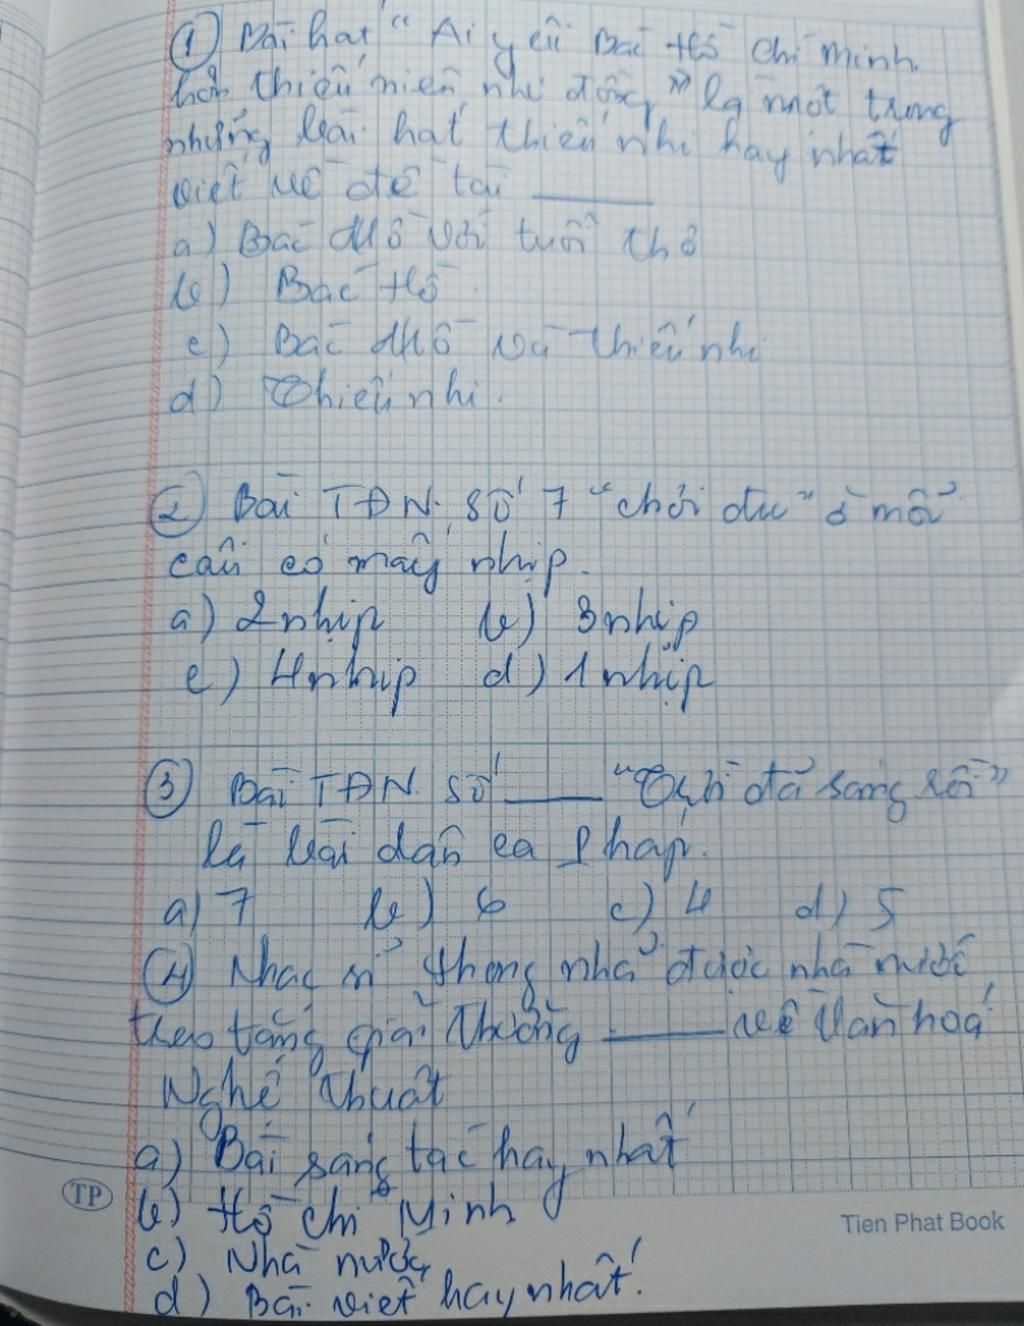 ① Bài hát "Ai yêu Bác Hồ Chí Minh
hơn thiếu niên nhi đồng" là một trong
những bài hát thiếu nhi hay nhất
viết về đề tài ______
a) Bác Hồ với tuổi thơ
b) Bác Hồ
c) Bác Hồ và thiếu nhi
d) Thiếu nhi.
② Bài TĐN số 7 "chơi đu" ở mỗi
câu có mấy nhịp.
a) 2 nhịp b) 3 nhịp
c) 4 nhịp d) 1 nhịp
③ Bài TĐN số ______ "Trời đã sáng rồi"
là bài dân ca Pháp.
a) 7 b) 6 c) 4 d) 5
④ Nhạc sĩ Phong nhã được nhà nước
trao tặng giải thưởng ______ về Văn hoá
Nghệ thuật
a) Bài sáng tác hay nhất
b) Hồ Chí Minh
c) Nhà nước
d) Bài viết hay nhất.
TP
Tien Phat Book